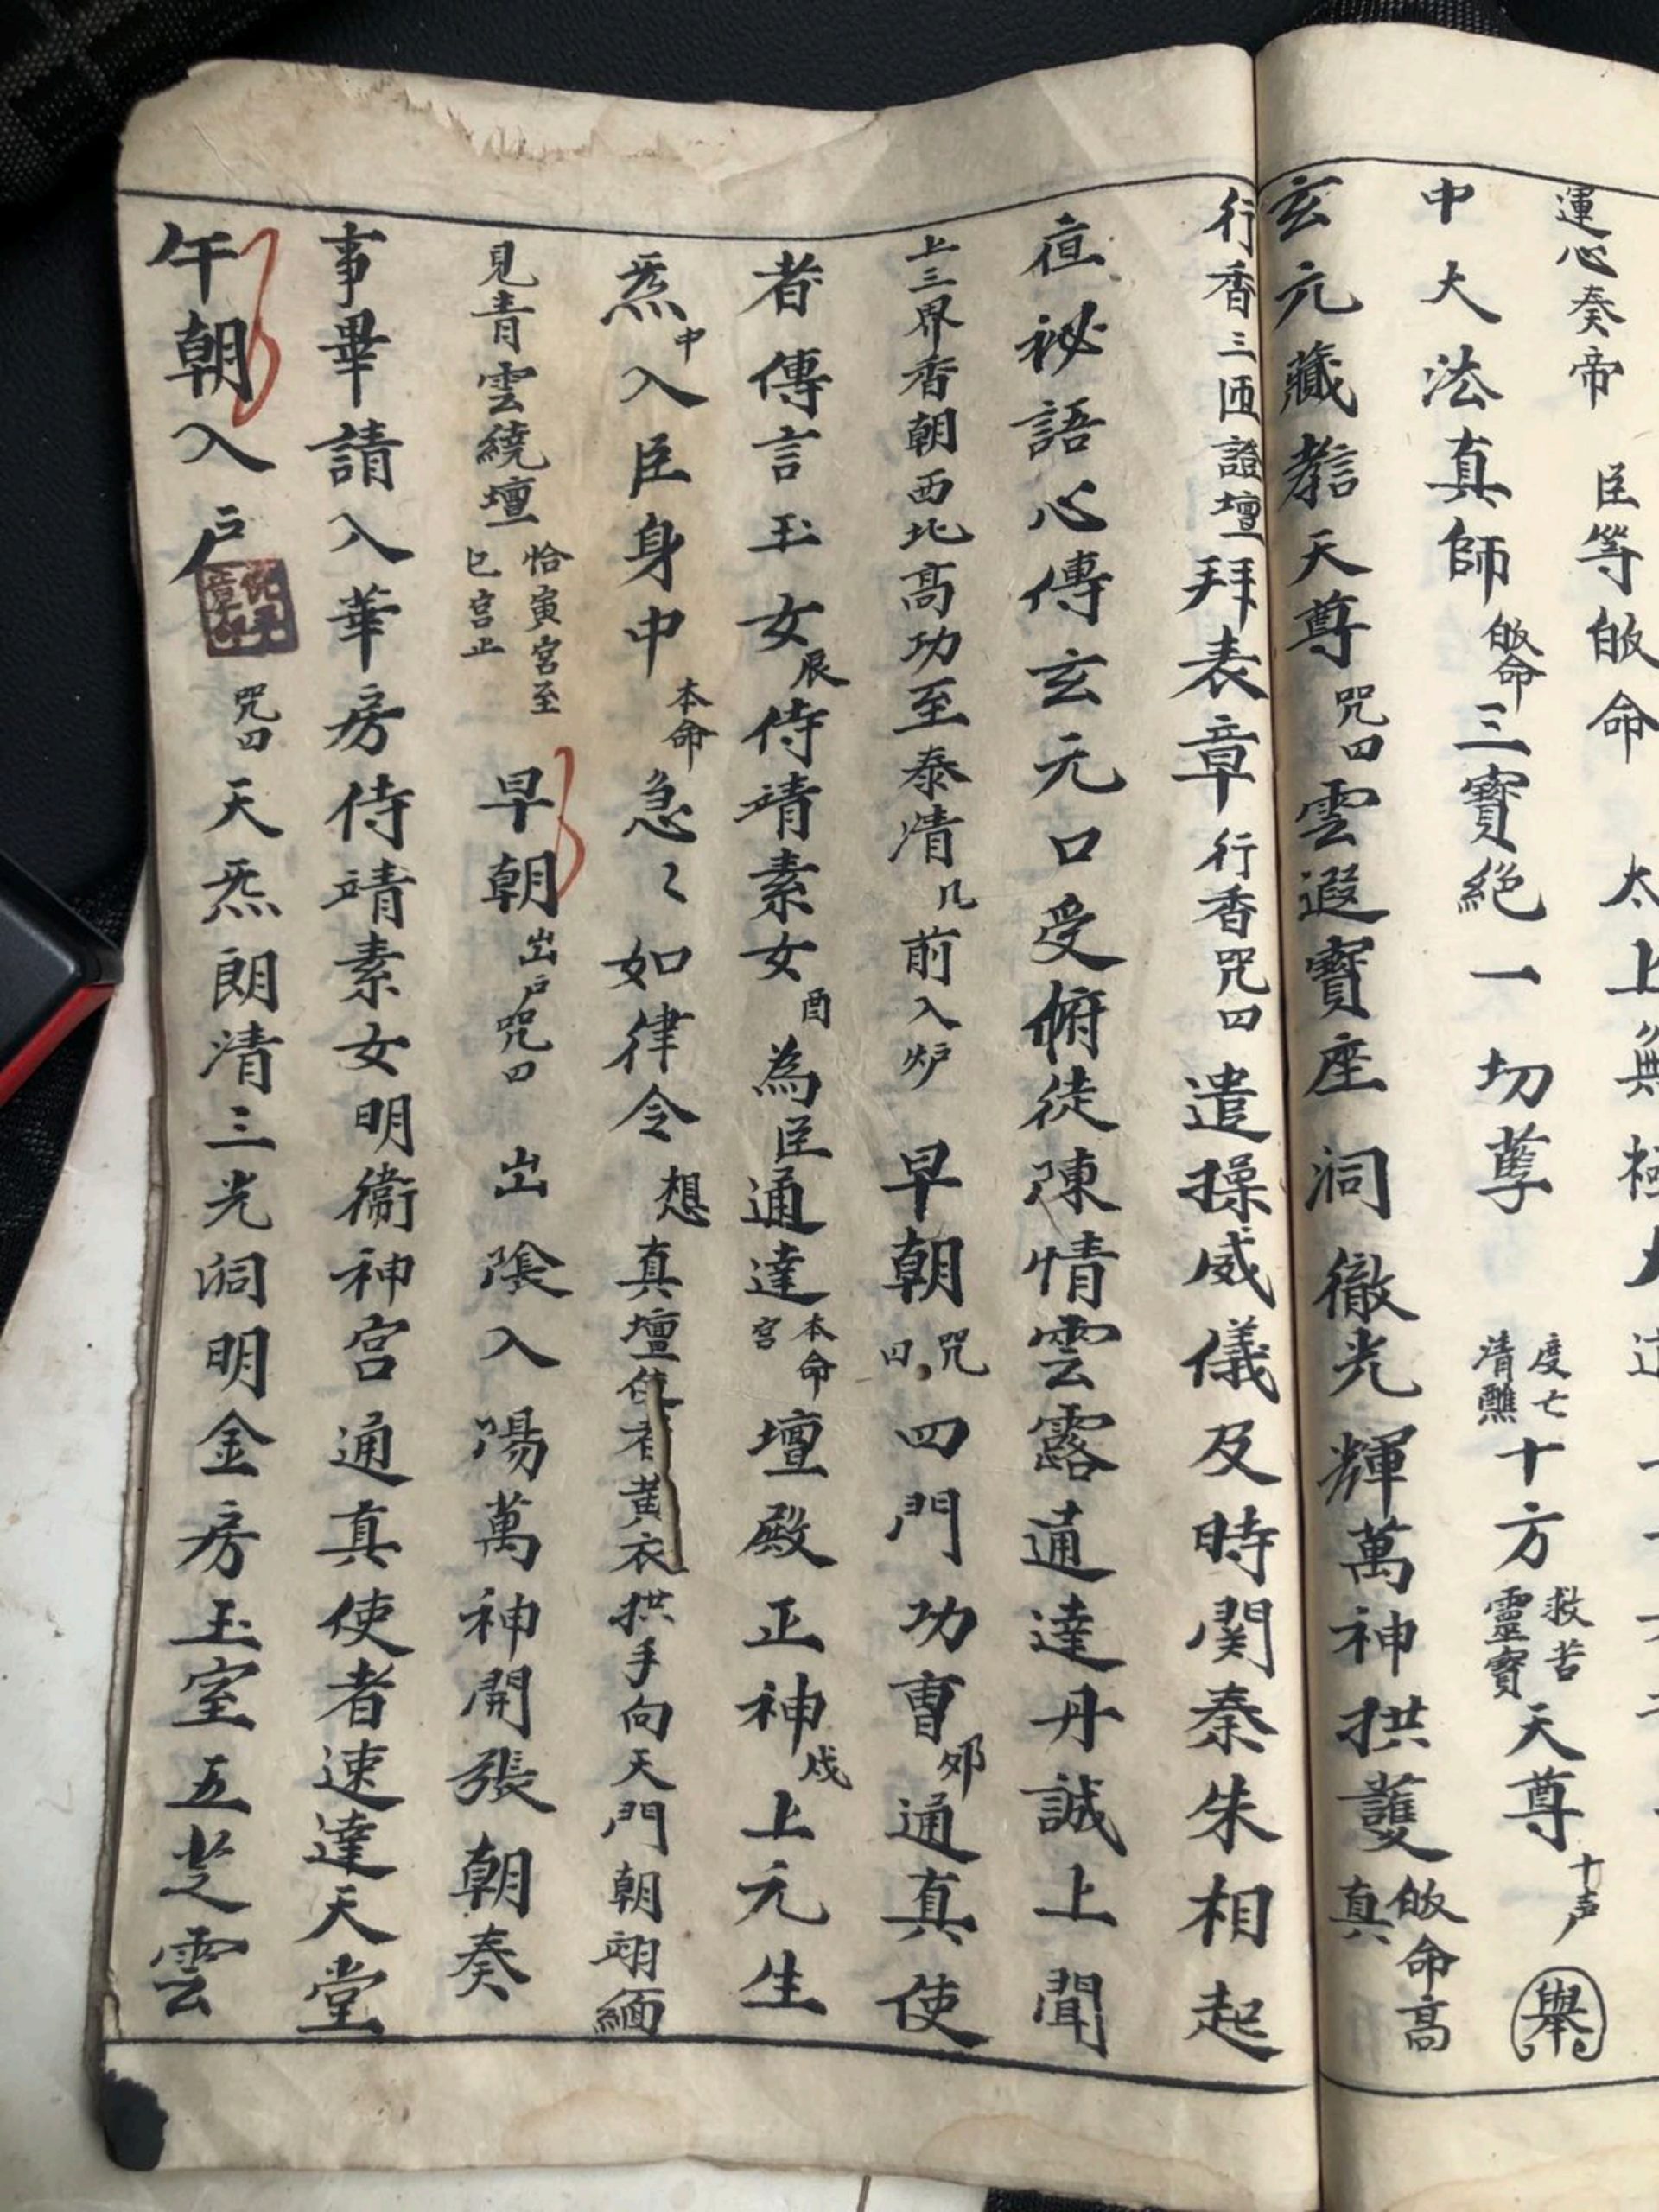 運心奏帝 臣等皈命 太上無極大
中大法真師皈命三寶絕一切尊 度亡清醮 十方 救苦靈寶 天尊十声 舉
玄元藏教天尊咒曰雲遐寶座洞徹光輝萬神拱護皈命高真
行香三匝證壇拜表章行香咒曰遣操威儀及時関奏朱相起
亱祕語心傳玄元口受俯徒陳情雲露通達丹誠上聞
上三界香朝西北高功至泰清几前入炉 早朝咒曰四門功曹夘通真使
者傳言玉女辰侍靖素女酉為臣通達本命宮壇殿正神戌上元生
炁中入臣身中本命急〻如律令 想真壇使者黃衣拱手向天門朝翊緬
見青雲繞壇恰寅宮至巳宮止 早朝出戶咒曰 出陰入陽萬神開張朝奏
事畢請入華房侍靖素女明衞神宮通真使者速達天堂
午朝入戶 咒曰天炁朗清三光洞明金房玉室五芝雲